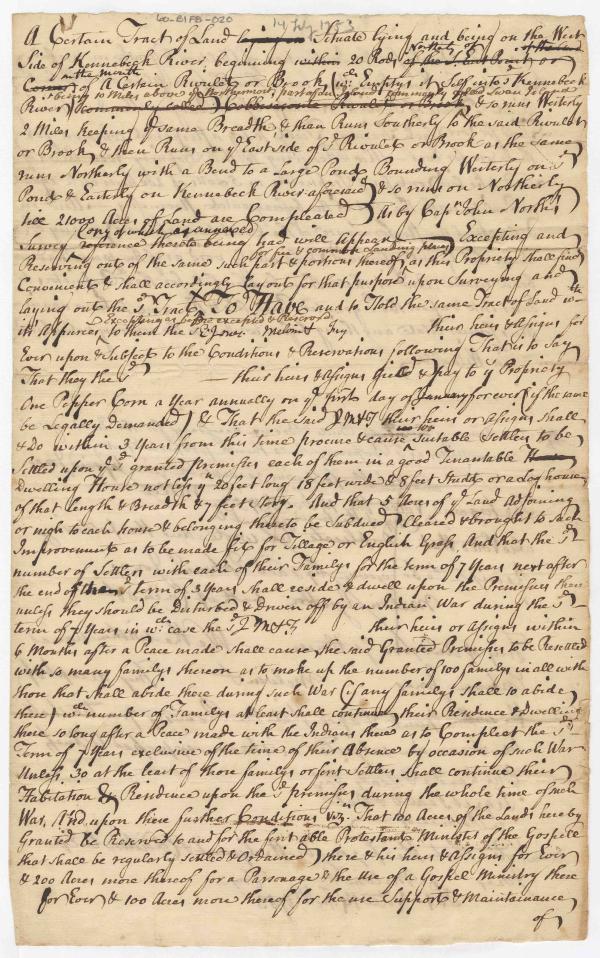 60-E1FB-020
14 July 1753
A Certain Tract of Land lying on Situate lying and being on the West
Side of Kennebeck River, beginning within 20 Rods Northerly of
on the Mouth of a Certain Rivulet or Brook (wch. Emptys it Self into sd Kennebeck
River) & so runs Westerly
2 Miles keeping ye same Breadth, & then Runs Southerly to the said Rivulet
or Brook, & then Runs on ye East side of sd Rivulet or Brook as the same
runs Northerly with a Bend to a Large Pond Bounding Westerly on sd
Pond & Easterly on Kennebeck River aforesaid & so runs on Northerly
till 21000 Acres of Land are Compleated As by Capn John North's
Survey Copy of which as annexed reference thereto being had will Appear Excepting and
Reserving out of the same such part & portions thereof for fire & common Landing places as this Propriety shall find
Convenient & shall accordingly lay out for that purpose upon Surveying and
laying out the sd Tract To Have and to Hold the same Tract of Land wth
its Appurces. Excepting as before excepted & Reserved to them the sd Jones Melvin & Fry their heirs & Assigns for
Ever upon & Subject to the Conditions & Reservations following That is to say
That they the sd their heirs & Assigns yield & pay to ye Propriety
One Pepper Corn a Year annually on ye first day of January forever (if the same
be Legally Demanded) & That the said J M & F their heirs or Assigns shall
& Do within 3 Years from this time procure & cause 100 Suitable Settlers to be
Settled upon ye sd granted premisses each of them in a good Tenantable House
Dwelling House not less yn 20 feet long 18 feet wide & 8 feet Studd or a Log house
of that length & Breadth & 7 feet Story. And that 5 Acres of ye Land Adjoining
or nigh to each House & belonging thereto be Subdued Cleared & brought to such
Improvement as to be made fit for Tillage or English Grass And that the sd
number of Settlers with each of their Familys for the term of 7 Years next after
the end of the sd term of 3 Years shall reside & dwell upon the Premisses then
unless they should be Disturbed & Driven off by an Indian War during the sd
term of 7 Years in wch. case the sd J M & F. their heirs or Assigns within
6 Months after a Peace made shall cause the said Granted Premisses to be Resettled
with so many familys thereon as to make up the number of 100 familys in all with
those that shall abide there during such War (if any familys shall so abide
there) wch number of Familys at least shall continue their Residence & Dwelling
there so long after a Peace made with the Indians there as to Compleat the sd
Term of 7 Years exclusive of the time of their Absence by occasion of such War
Unless 30 at the least of those familys or first Settlers shall continue their
Habitation & Residence upon the sd premisses during the whole time of such
War, And upon these further Conditions Viz. That 100 Acres of the Lands hereby
Granted be Reserved to and for the first able Protestant Minister of the Gospell
that shall be regularly settled & Ordained there & his heirs & Assigns for Ever
& 200 Acres more thereof for a Parsonage & the Use of a Gospel Ministry there
for Ever & 100 Acres more thereof for the use Support & Maintainance
of